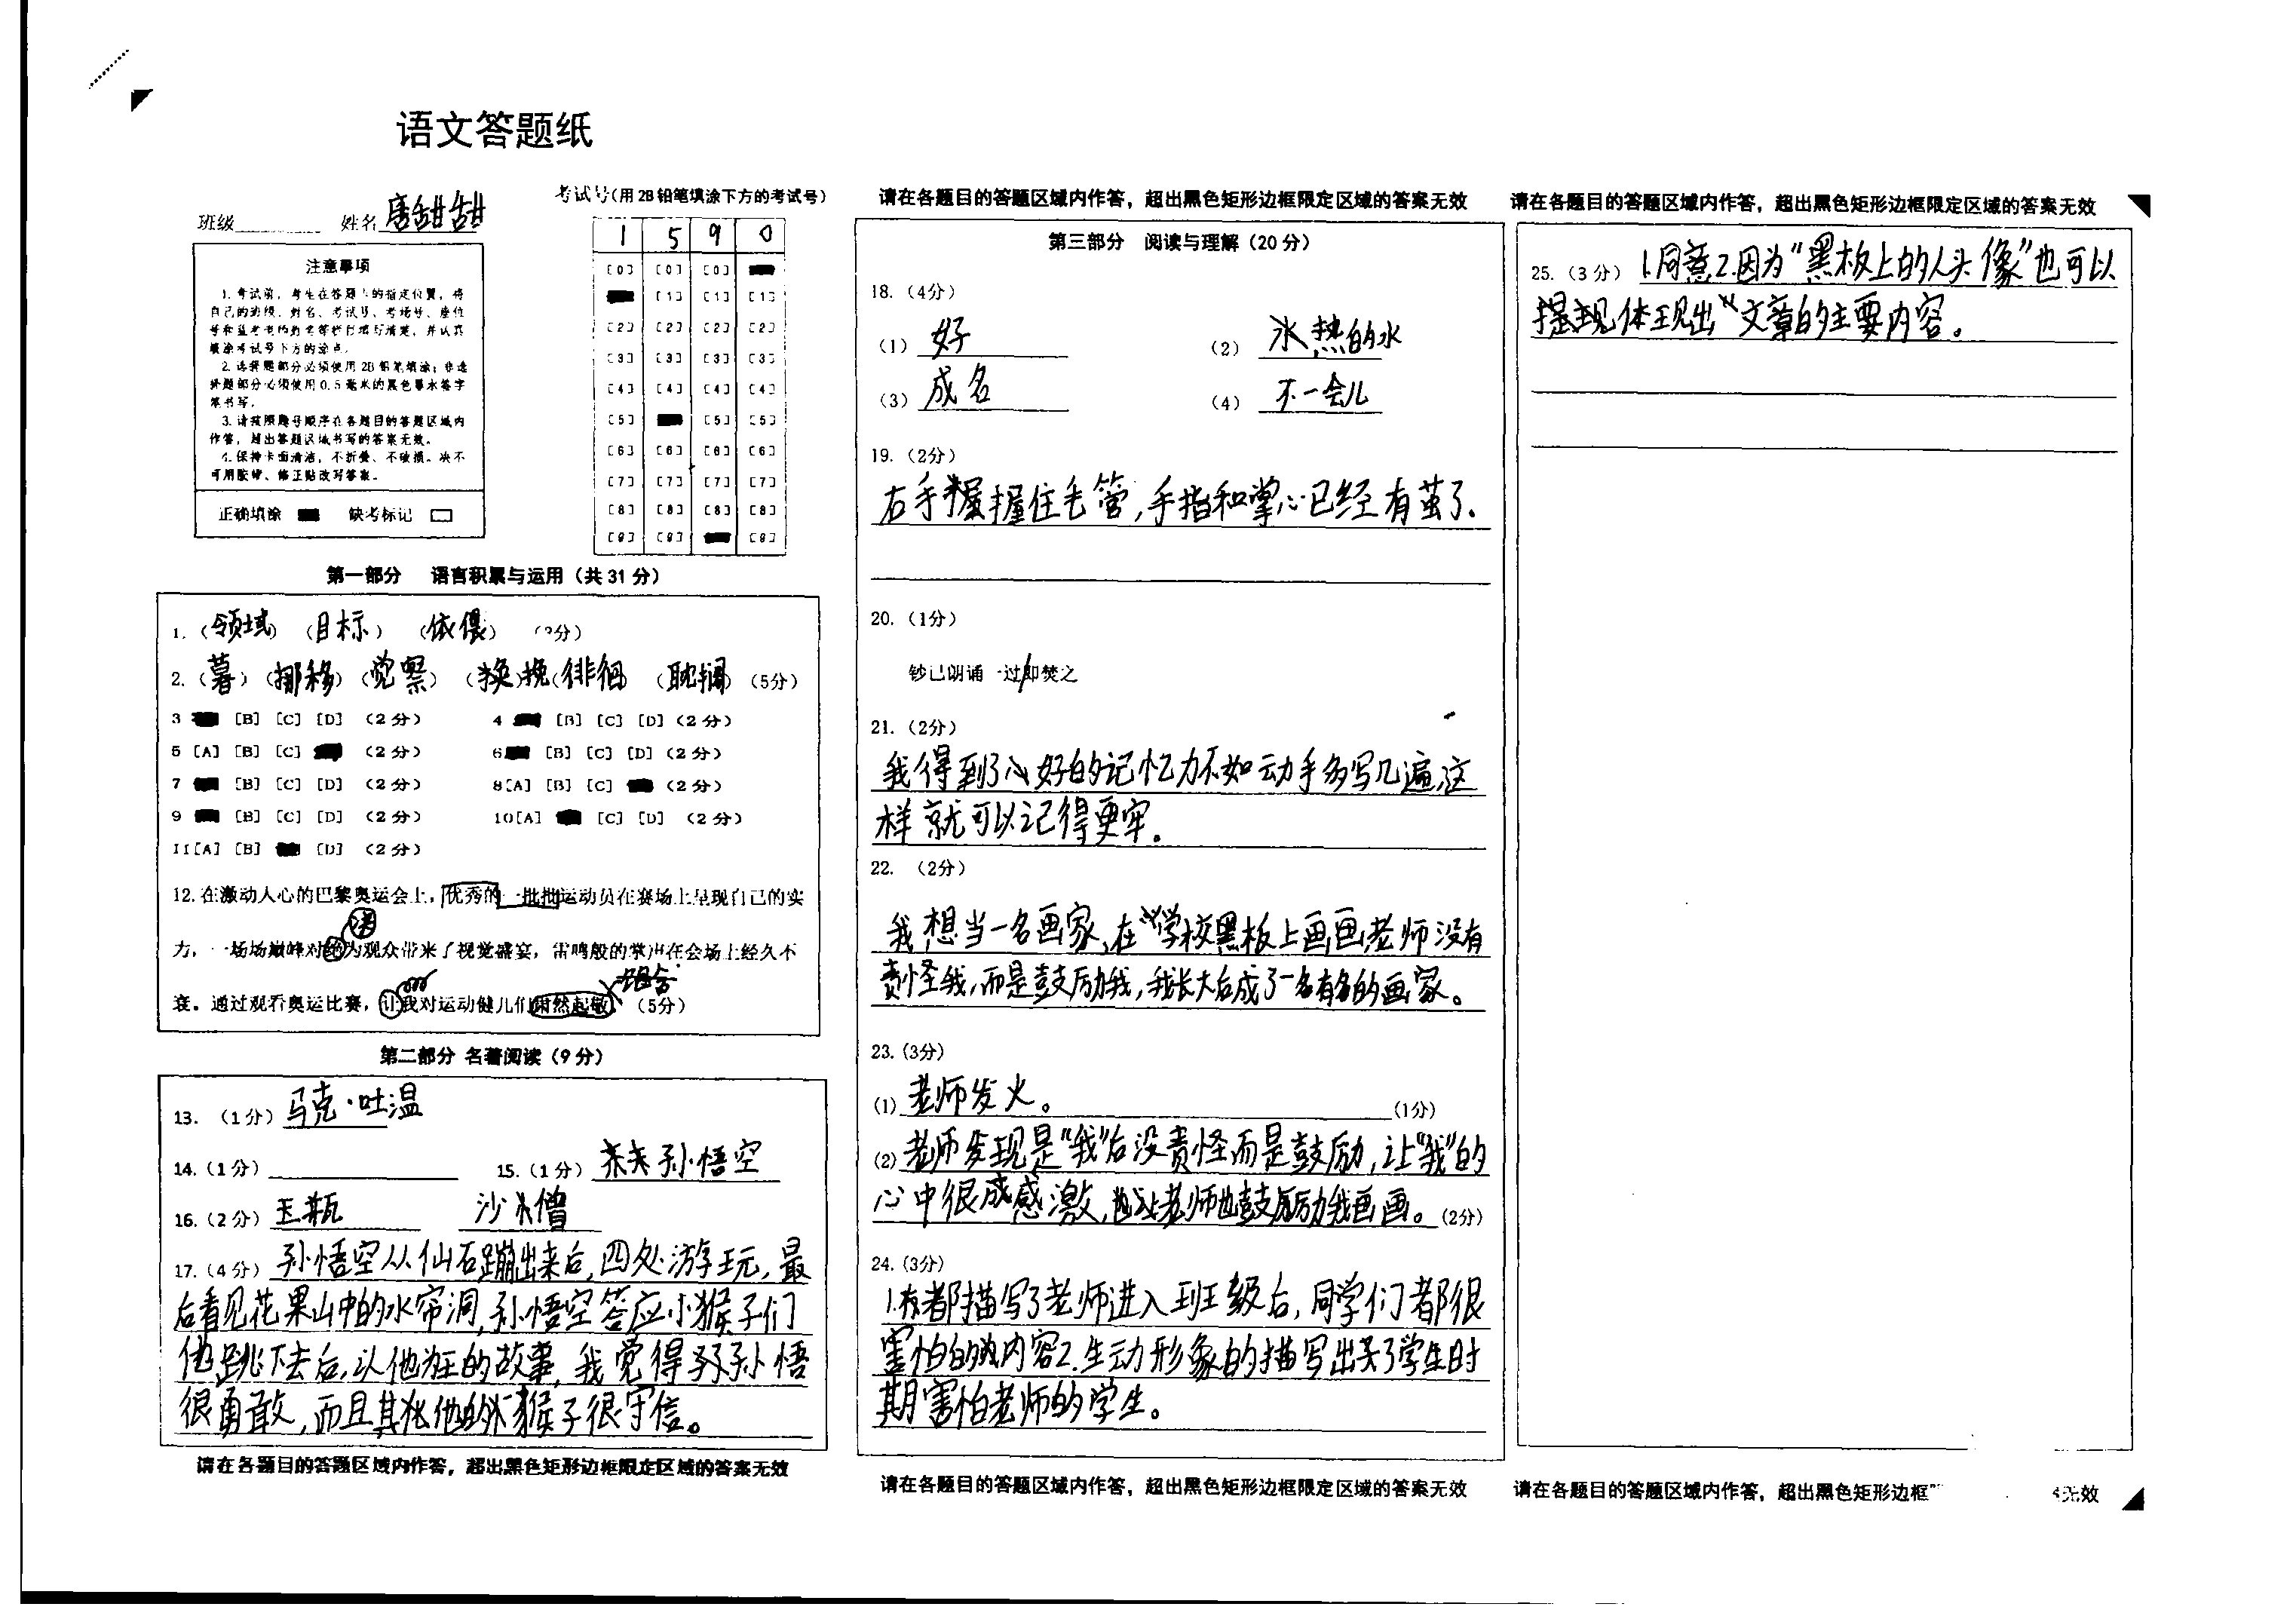 语文答题纸
班级 姓名 唐甜甜
考试号(用 2B 铅笔填涂下方的考试号)
1 5 9 0
[0] [0] [0]
[1] [1] [1]
[2] [2] [2] [2]
[3] [3] [3] [3]
[4] [4] [4] [4]
[5] [5] [5]
[6] [6] [6] [6]
[7] [7] [7] [7]
[8] [8] [8] [8]
[9] [9] [9]
注意事项
1. 考试前，考生在答题卡的指定位置，将
自己的班级、姓名、考试号、考场号、座位
号和监考老师姓名等栏目填写清楚，并认真
填涂考试号下方的涂点。
2. 选择题部分必须使用 2B 铅笔填涂；非选
择题部分必须使用 0.5 毫米的黑色墨水签字
笔书写。
3. 请按照题号顺序在各题目的答题区域内
作答，超出答题区域书写的答案无效。
4. 保持卡面清洁，不折叠、不破损。决不
可用胶带、修正贴改写答案。
正确填涂 缺考标记
第一部分 语言积累与运用（共 31 分）
1.（领域）（目标）（依偎）（3分）
2.（暮）（挪移）（觉察）（换 挽）（徘徊）（耽搁）（5分）
3 [B] [C] [D] （2 分） 4 [B] [C] [D]（2 分）
5 [A] [B] [C] （2 分） 6 [B] [C] [D]（2 分）
7 [B] [C] [D] （2 分） 8[A] [B] [C] （2 分）
9 [B] [C] [D] （2 分） 10[A] [C] [D] （2 分）
11[A] [B] [D] （2 分）
12. 在激动人心的巴黎奥运会上，优秀的一批批运动员在赛场上呈现自己的实
力，一场场巅峰对 为观众带来了视觉盛宴，雷鸣般的掌声在会场上经久不
衰。通过观看奥运比赛，让我对运动健儿们肃然起敬。（5分）
第二部分 名著阅读（9 分）
13. （1 分）马克·吐温
14.（1 分） 15.（1 分） 孙悟空
16.（2 分）玉瓶 沙僧
17.（4 分）孙悟空从仙石蹦出来后，四处游玩，最
后看见花果山中的水帘洞，孙悟空答应小猴子们
他跳下去后，以他为王的故事，我觉得 孙悟
很勇敢，而且其他的 猴子很守信。
请在各题目的答题区域内作答，超出黑色矩形边框限定区域的答案无效
请在各题目的答题区域内作答，超出黑色矩形边框限定区域的答案无效
第三部分 阅读与理解（20 分）
18.（4分）
（1）好 （2）热的水
（3）成名 （4）不一会儿
19.（2分）
右手握握住毛管，手指和掌心已经有茧了.
20.（1分）
钞已朗诵一过/即焚之
21.（2分）
我得到了 好的记忆力不如动手多写几遍，这
样就可以记得更牢。
22. （2分）
我想当一名画家，在学校黑板上画画，老师没有
责怪我，而是鼓励我，我长大后成了一名有名的画家。
23.（3分）
(1) 老师发火。 (1分)
(2) 老师发现是“我”后没责怪而是鼓励，让“我”的
心中很 感激， 老师也鼓励我画画。(2分)
24.（3分）
1. 都描写了老师进入班级后，同学们都很
害怕的 内容2.生动形象的描写出 了学生时
期害怕老师的学生。
请在各题目的答题区域内作答，超出黑色矩形边框限定区域的答案无效
请在各题目的答题区域内作答，超出黑色矩形边框限定区域的答案无效
25.（3 分）1.同意2.因为“黑板上的人头像”也可以
体现出 文章的主要内容。
请在各题目的答题区域内作答，超出黑色矩形边框 无效